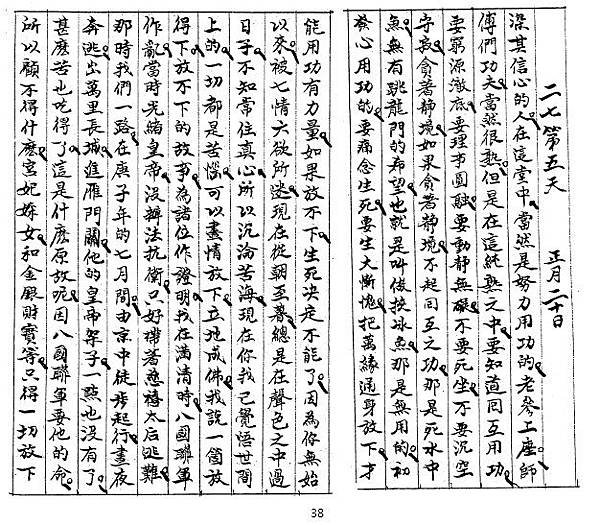 二七第五天 正月二十日
深其信心的人在這堂中當然是努力用功的老參上座師
傅們功夫當然很熟但是在這純熟之中要知道回互用功
要窮源澈底要理事圓融要動靜無礙不要死坐不要沉空
守寂貪著靜境如果貪著靜境不起回互之功那是死水中
魚無有跳龍門的希望也就是叫做挾冰魚那是無用的初
發心用功的要痛念生死要生大慚愧把萬緣通身放下才
能用功有力量如果放不下生死決定不能了因為你無始
以來被七情六欲所迷現在從朝至暮總是在聲色之中過
日子不知常住真心所以沉淪苦海現在你我已覺悟世間
上的一切都是苦惱可以盡情放下立地成佛我說一個放
得下放不下的故事為諸位作證明我在滿清時八國聯軍
作亂當時光緒皇帝沒辦法抗衡只好帶著慈禧太后逃難
那時我們一路在庚子年的七月間由京中徒步起行晝夜
奔逃出萬里長城進雁門關他的皇帝架子一點也沒有了
甚麼苦也吃得了這是什麼原故呢因八國聯軍要他的命
所以顧不得什麼宮妃婇女和金銀財寶等只得一切放下
38